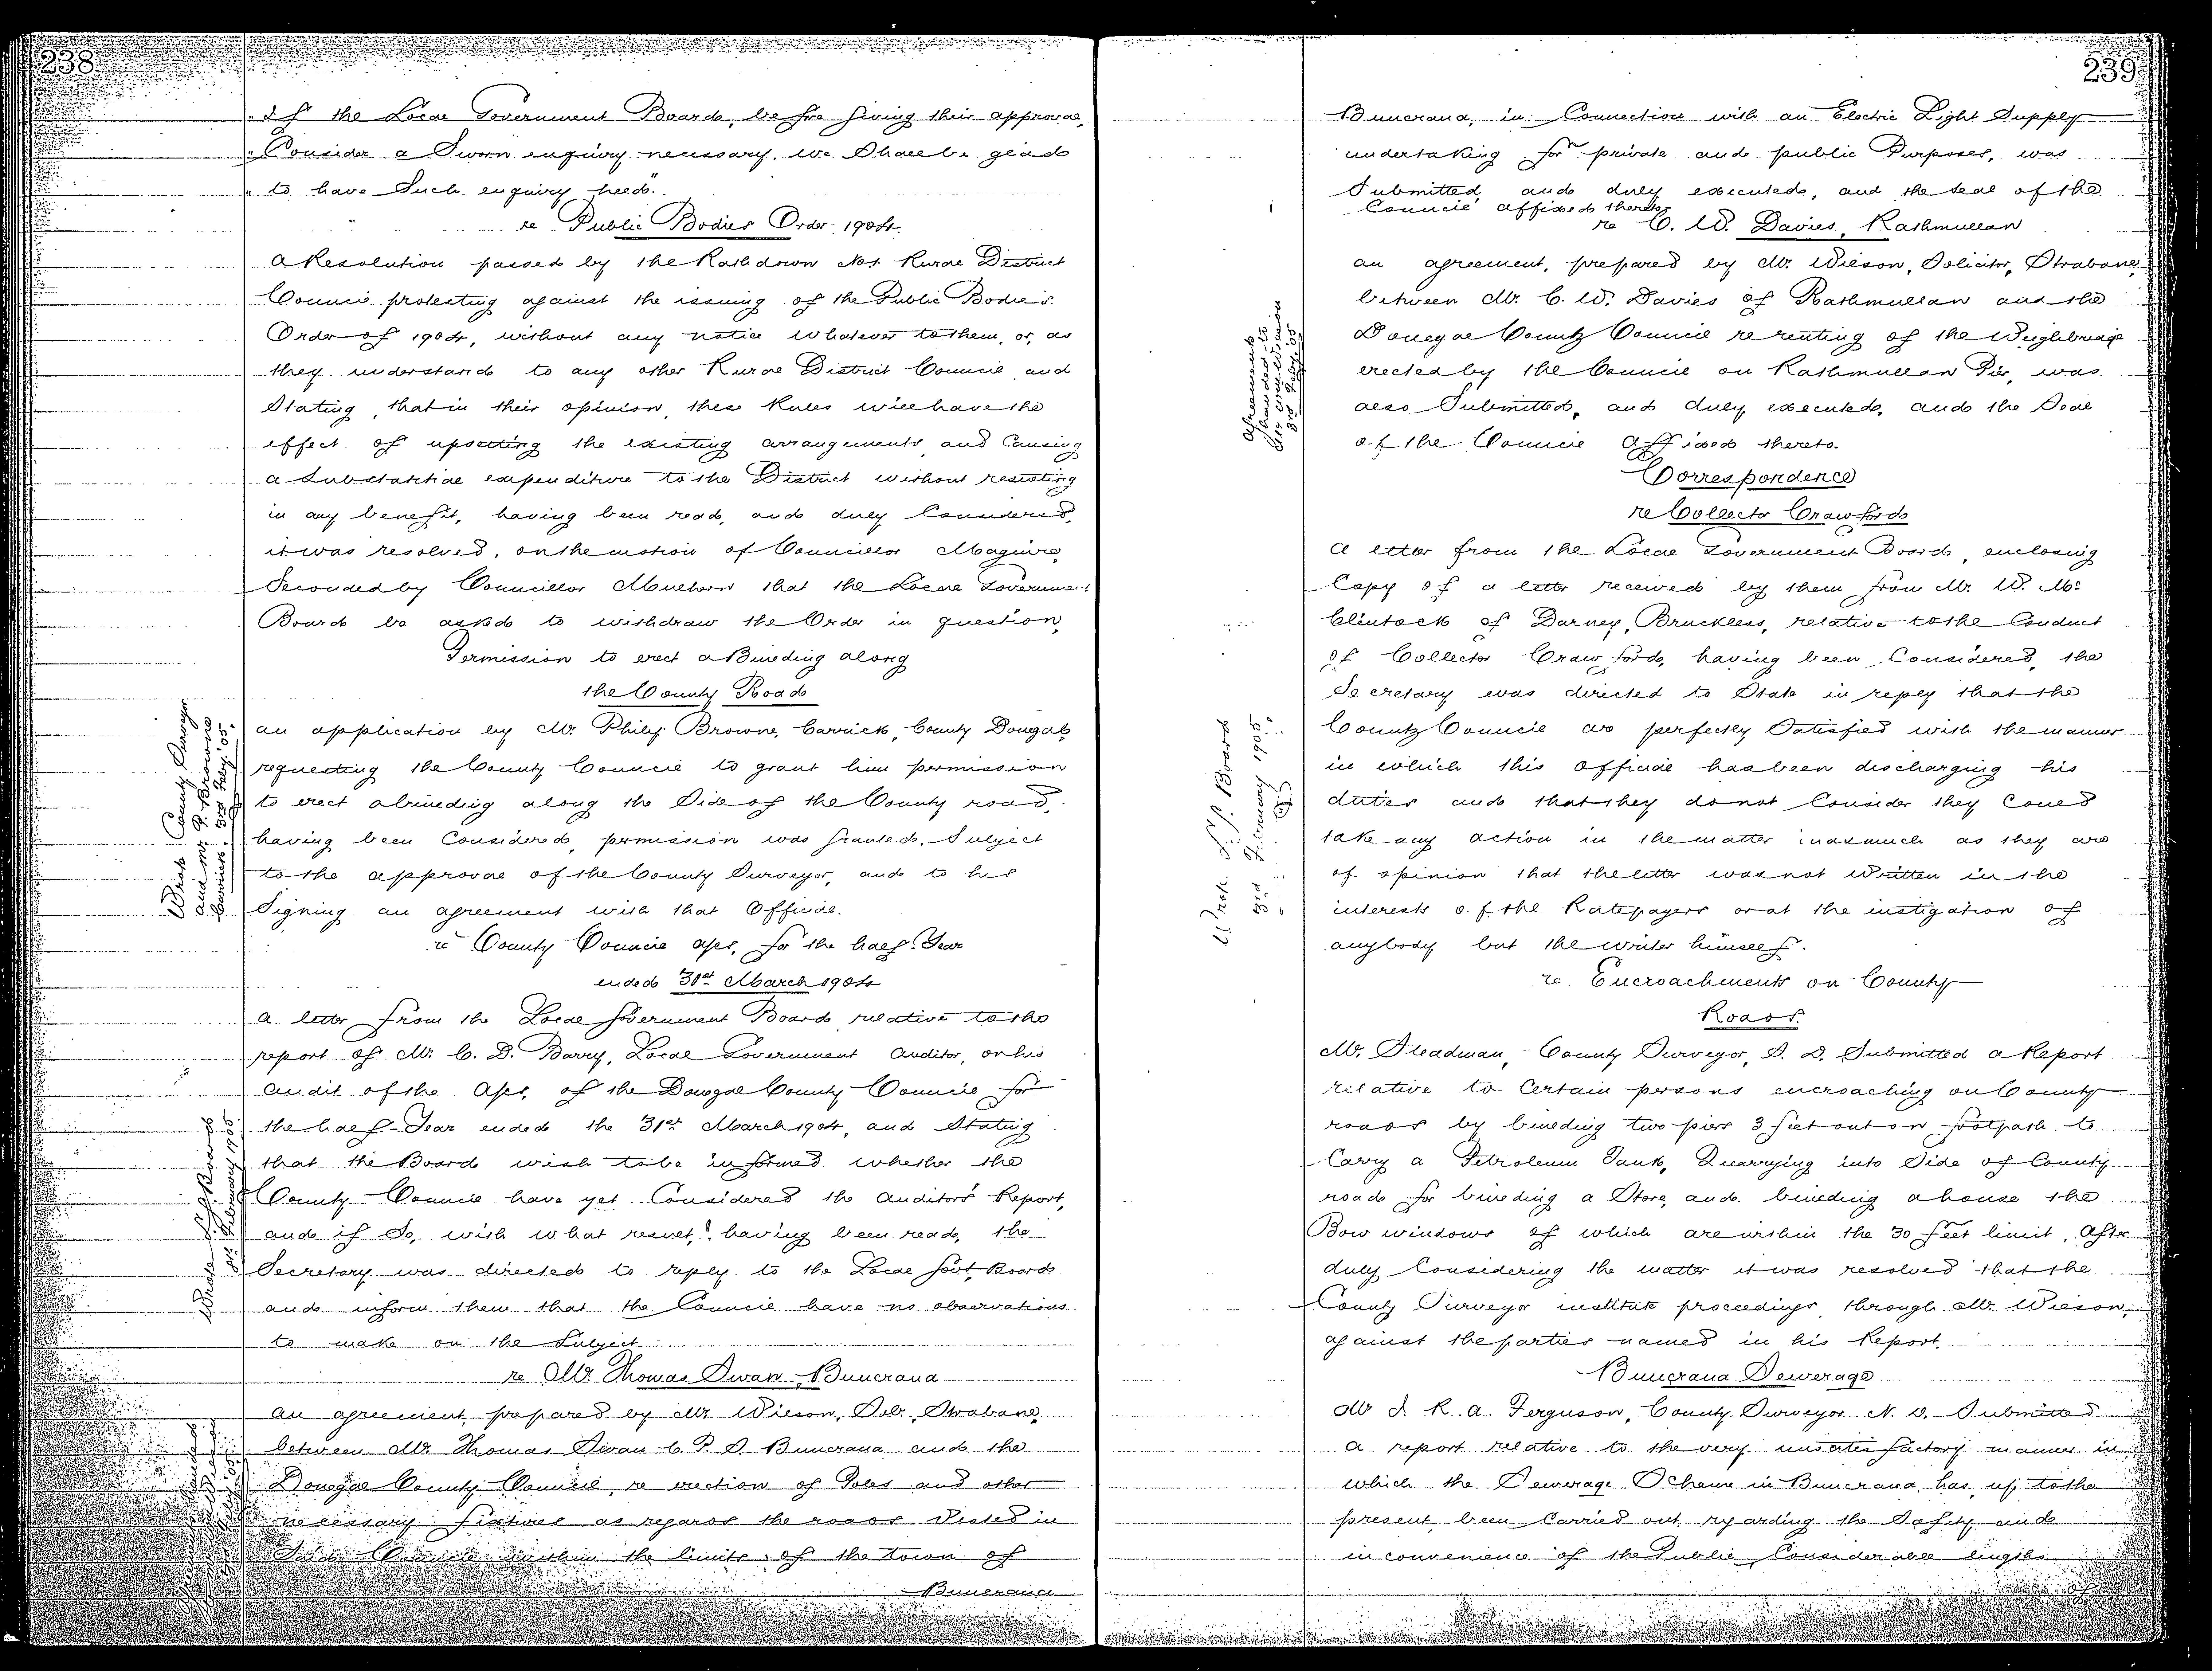 238
"If the Local Government Board, before giving their approval,
"Consider a Sworn enquiry necessary, we Shall be glad
"to have Such enquiry held."
re Public Bodies Order 1904.
A Resolution passed by the Rathdown No1 Rural District
Council protesting against the issuing of the Public Bodies
Order of 1904, without any notice whatever to them, or, as
they understand to any other Rural District Council, and
Stating, that in their opinion, these Rules will have the
effect of upsetting the existing arrangements and Causing
a Substantial expenditure to the District without resulting
in any benefit, having been read, and duly Considered,
it was resolved, on the motion of Councillor Maguire,
Seconded by Councillor Mulhern that the Local Government
Board be asked to withdraw the Order in question,
Permission to erect a Building along
the County Road
an application by Mr Philip Browne, Carrick, County Donegal,
requesting the County Council to grant him permission
to erect a building along the Side of the County road,
having been Considered, permission was granted, Subject
to the approval of the County Surveyor, and to his
Signing an agreement with that Official.
Wrote County Surveyor
and Mr P. Browne
Carrick. 3rd Feby '05.
re County Council a/cs, for the half-Year
ended 31st March 1904
A letter from the Local Government Board relative to the
report of Mr C. D. Barry, Local Government Auditor, on his
audit of the a/cs, of the Donegal County Council for
the half-Year ended the 31st March 1904, and Stating
that the Board wish to be informed whether the
County Council have yet Considered the Auditors Report,
and if So, with what result," having been read, the
Secretary was directed to reply to the Local Govt Board
and inform them that the Council have no observations
to make on the Subject
Wrote L. G. Board
3rd February 1905
re Mr Thomas Swan, Buncrana
An agreement, prepared by Mr Wilson, Sol., Strabane,
between Mr Thomas Swan C. P. S. Buncrana and the
Donegal County Council, re erection of Poles and other
necessary fixtures as regards the roads Vested in
the limits of the town of
Buncrana
239
Buncrana, in Connection with an Electric Light Supply
undertaking for private and public Purposes, was
Submitted, and duly executed, and the Seal of the
Council affixed thereto.
re C. W. Davies, Rathmullan
an agreement, prepared by Mr. Wilson, Solicitor, Strabane,
between Mr. C. W. Davies of Rathmullan and the
Donegal County Council re renting of the Weighbridge
erected by the Council on Rathmullan Pier, was
also Submitted, and duly executed, and the Seal
of the Council affixed thereto.
Agreement
3rd Feby '05
Correspondence
re Collector Crawford
A letter from the Local Government Board, enclosing
Copy of a letter received by them from Mr. W. Mc:
Clintock of Darney, Bruckless, relative to the Conduct
of Collector Crawford, having been Considered, the
Secretary was directed to State in reply that the
County Council are perfectly Satisfied with the manner
in which this Official has been discharging his
duties and that they do not Consider they Could
take any action in the matter inasmuch as they are
of opinion that the letter was not Written in the
interests of the Ratepayers or at the instigation of
anybody but the writer himself.
Wrote L. G. Board
3rd February 1905.
re Encroachments on County
Roads.
Mr. Steadman, County Surveyor, S. D. Submitted a Report
relative to Certain persons encroaching on County
roads by building two piers 3 feet out on footpath to
Carry a Petroleum Tank, Quarrying into Side of County
road for building a Store, and building a house the
Bow windows of which are within the 30 feet limit, After
duly Considering the matter it was resolved that the
County Surveyor institute proceedings, through Mr. Wilson,
against the parties named in his Report.
Buncrana Sewerage
Mr J. R. A. Ferguson, County Surveyor N. D. Submitted
a report relative to the very unsatisfactory manner in
which the Sewerage Scheme in Buncrana has, up to the
present, been Carried out regarding the Safety and
inconvenience of the Public, Considerable lengths
of